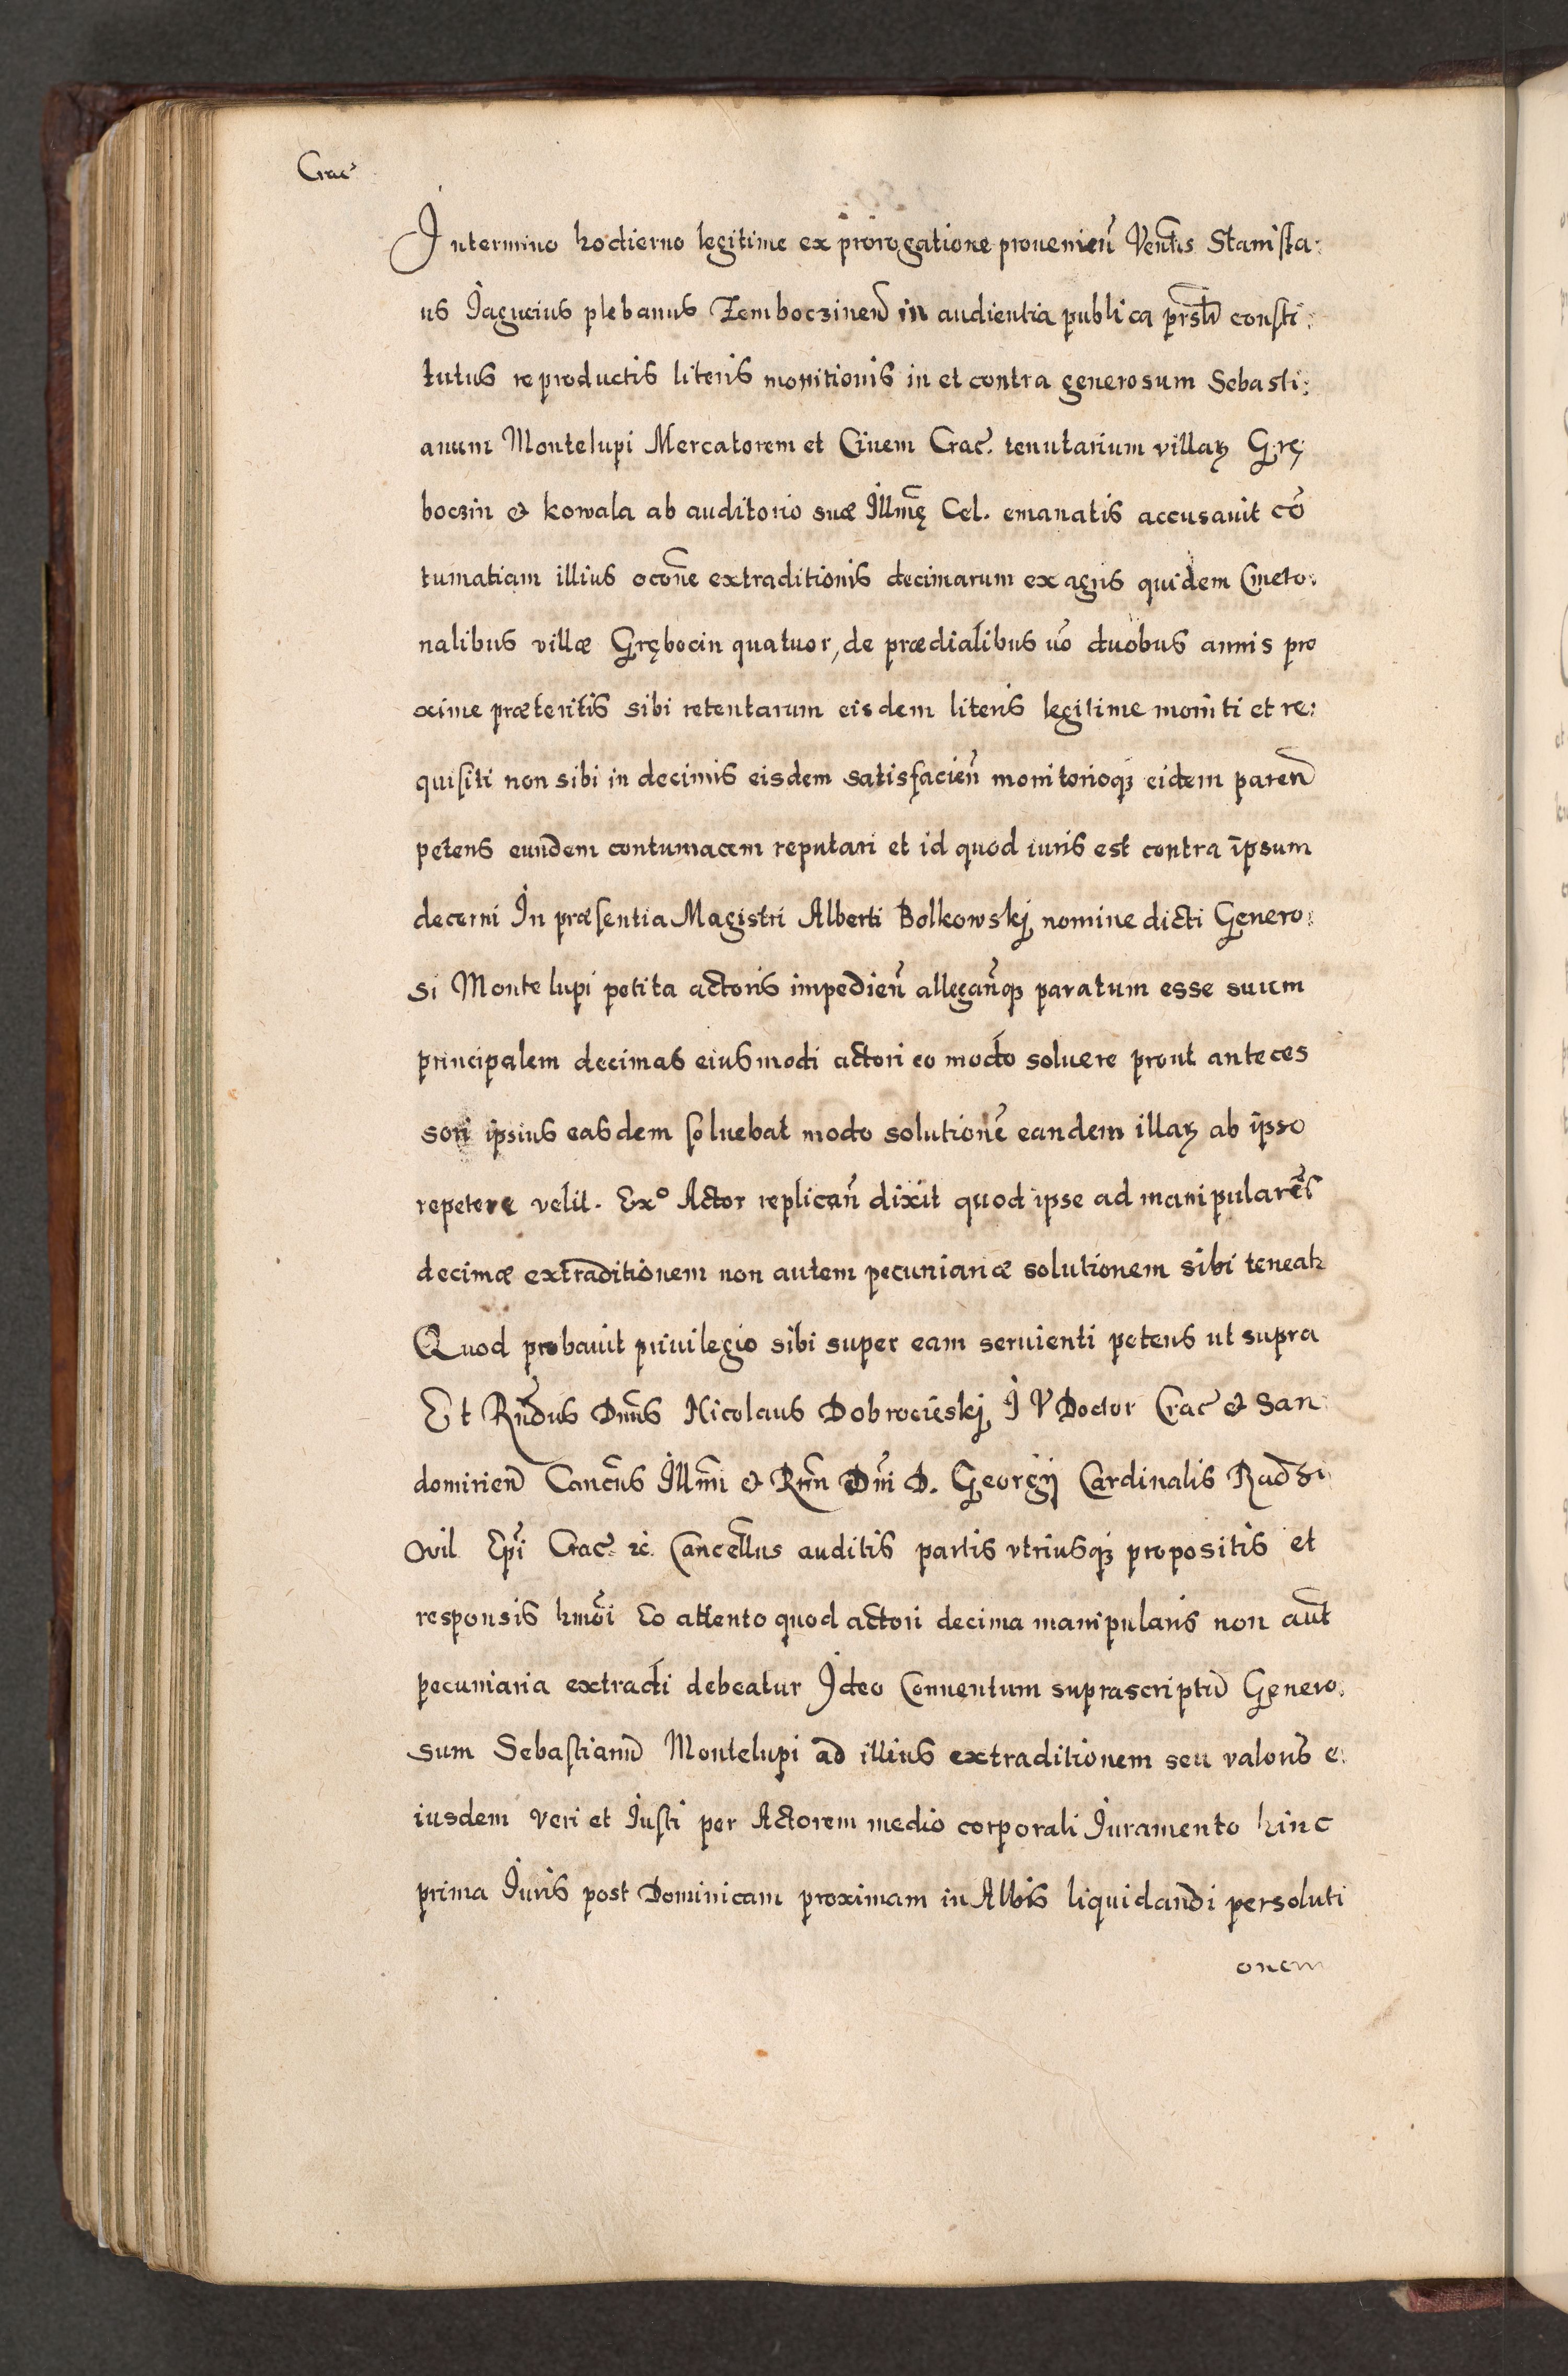 Crac̃
In termino hodierno legitime ex prorogatione prouenien̄ Venͣbͥlis Stanisla:
us Jagucius plebanus Zemboczinen̄ in audientia publica prsͣlr̄ consti:
tutus reproductis literis monitionis in et contra generosum Sebasti:
anum Montelupi Mercatorem et Ciuem Crac̃. tenutarium villaꝝ Grę
boczin & kowala ab auditorio suæ Illm̄ę Cel. emanatis accusauit cō
tumatiam illius occōne extraditionis decimarum ex agris quidem Cmeto:
nalibus villæ Grębocin quatuor, de prædialibus uō duobus annis pro
xime præteritis sibi retentarum eisdem literis legitime moniti et re:
quisiti non sibi in decimis eisdem satisfacien̄ monitorioqꝫ eidem paren̄
petens eundem contumacem reputari et id quod iuris est contra ipsum
decerni In præsentia Magistri Alberti Bolkowskj nomine dicti Genero:
si Montelupi petita actoris impedien̄ allegan̄qꝫ paratum esse suum
principalem decimas eiusmodi actori eo modo soluere prout anteces
sori ipsius easdem soluebat modo solutionē eandem illaꝝ ab ipso
repetere velit. Exº Actor replican̄ dixit quod ipse ad manipularēs
decimæ extraditionem non autem pecuniariæ solutionem sibi teneatꝛ
Quod probauit priuilegio sibi super eam seruienti petens ut supra
Et Rn̄dus Dnn̄s Nicolaus Dobrocieskj I V Doctor Crac̃ & San
domirien̄ Canc̄us Illm̄i & Rmn̄ Dn̄i D. Georgij Cardinalis Radzi
ovil Ep̄i Crac̃. ꝛc. Cancell̄us auditis partis vtriusqꝫ propositis et
responsis hmōi Eo attento quod actori decima manipularis non aut̄
pecuniaria extradi debeatur Ideo Conuentum suprascriptū Genero:
sum Sebastianū Montelupi ad illius extraditionem seu valoris e:
iusdem veri et Iusti per Actorem medio corporali Iuramento hinc
prima Iuris post Dominicam proximam in Albis liquidandi persoluti
onem